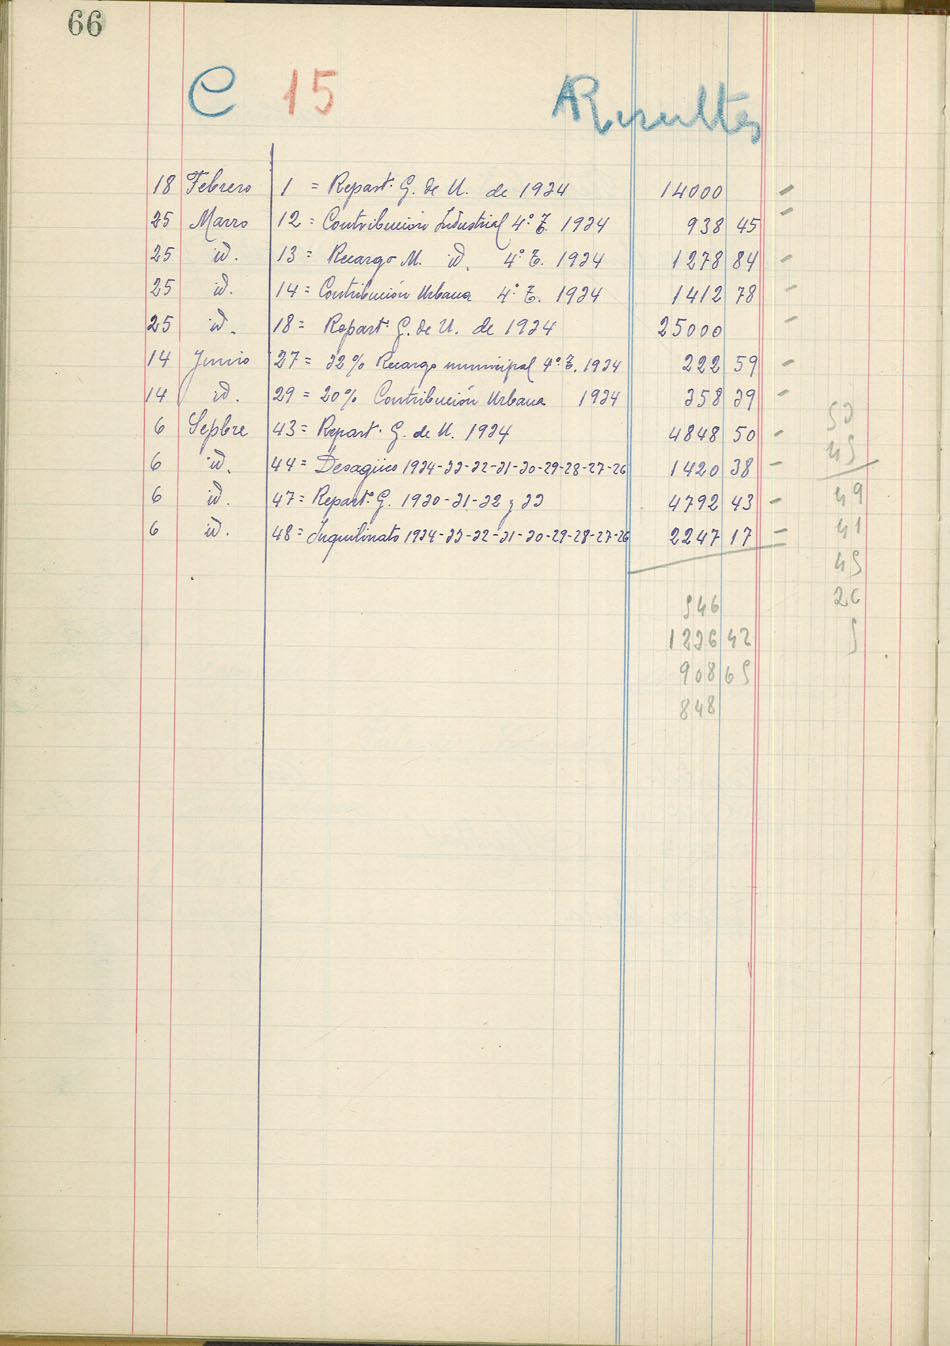 66
C 15 Resultas
18 Febrero 1 = Repart. G. de U. de 1934 14000
25 Marzo 12 = Contribución Industrial 4º T. 1934 938 45
25 id. 13 = Recargo M. id. 4º T. 1934 1278 84
25 id. 14 = Contribución Urbana 4º T. 1934 1412 78
25 id. 18 = Repart. G. de U. de 1934 25000
14 Junio 27 = 32% Recargo municipal 4º T. 1934 222 59
14 id. 29 = 20% Contribución Urbana 1934 358 39
6 Sepbre 43 = Repart. G. de U. 1934 4848 50
6 id. 44 = Desagües 1934-33-32-31-30-29-28-27-26 1420 38
6 id. 47 = Repart. G. 1930-31-32 y 33 4792 43
6 id. 48 = Inquilinato 1934-33-32-31-30-29-28-27-26 2247 17
546
1236 42
908 65
848
53
45
49
41
45
26
5